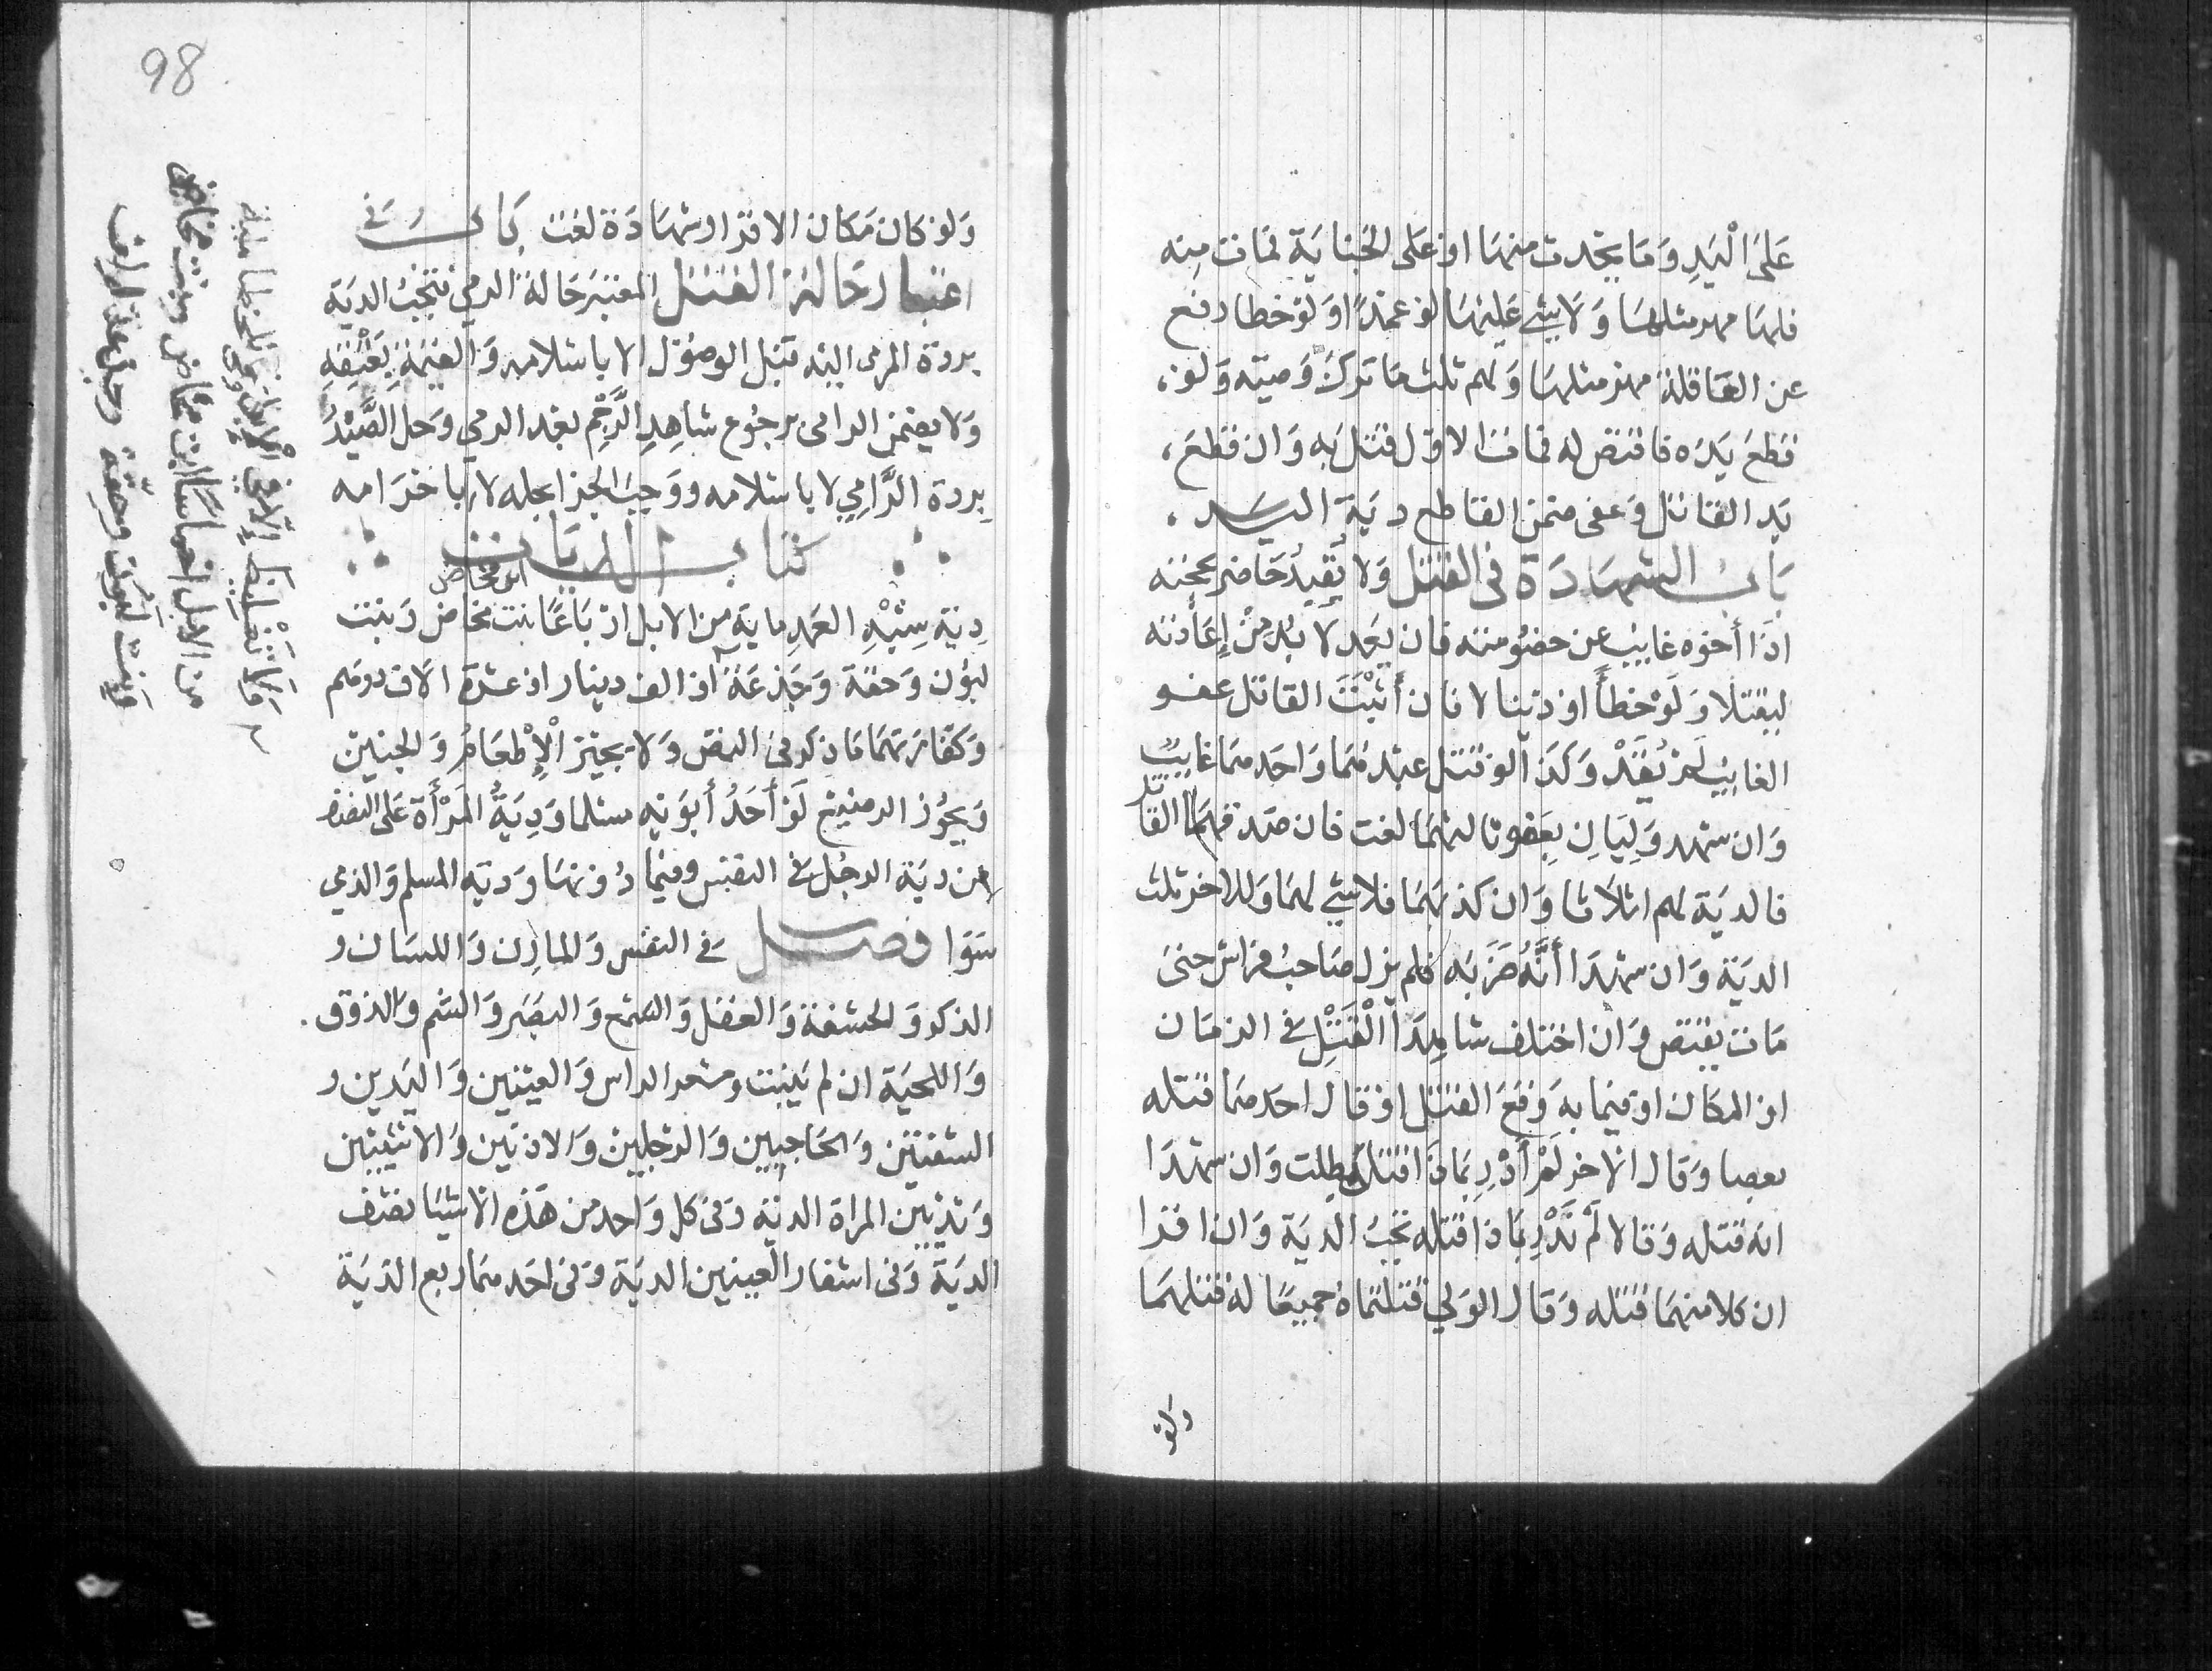 عَلَى الْيَدِ وَمَا يحْدث منهَا اوْ عَلى الجنَايَة فمَات مِنه
فلهَا مهر مثلهَا وَلَا شي عَليْهَا لوْ عمْدًا وَلوْ خطا رفع
عن العَاقلة مهرُ مثلهَا وَلهم ثلث مَا تركَ وَصيّه وَلوْ
قطعَ يَدَه فاقتص له فماتَ الاوّل قتل به وَان قطعَ
يَد القاتل وَعفى ضمن القاطع ديَة اليَد
بَابُ الشهَادَة فى القتل وَلا يُقِيدُ حَاضر بحجته
اذَا أخوه غايب عن خصُومته فان يَعد لَا بُد مِنْ إِعَادته
ليقتلا وَلَوْ خطأ اوْ ديْنا لا فان أَثْبَتَ القاتل عفو
الغايِب لَمْ يُقَدْ وَكذَا لوْ قتل عبْدهُمَا وَاحَدهمَا غايبٌ
وَان شهد وَلِيَانِ بِعَفو ثالثهمَا لغت فان صَدقهمَا القاتل
فالديَة لهم اثلَاثا وَان كذبهَمَا فلا شي لهمَا وَللاخر ثلث
الديَة وَان شهدَا أَنَّهُ ضَرَبَه فلم يزل صَاحبُ فرَاش حتى
مَات يقتص وَان اختلف شاهِدَا الْقَتْلِ في الزمَان
او المكان اوْ فيمَا بهِ وَقعَ القتل اوْ قال احَدهمَا قتله
بعصا وَقال الاخر لَمْ أَدْرِ بمَاذَا قتل بطلت وَان شهدَا
انه قتله وَقالا لَمْ نَدْرِ بمَاذا قتله تجبُ الديَة وَان اقرا
ان كلا منهمَا قتله وَقال الوَلي قتلتماهُ جميعًا لهُ قتلهمَا
ولو
98
وَلوْ كان مَكان الاقرار شهَادَة لغت بَابُ في
اعتبار حَالة القتل المعتبرَ حَالة الرمي فتجبُ الديَة
بردة المرمى اليه قبل الوصُوْل لا باسْلامه وَالقيْمَة بِعَتْقِهِ
وَلا يضمن الرامى برجُوع شاهِدِ الرَّجْم بعد الرمي وَحل الصَّيْدُ
بِردة الرَّامِي لا باسْلامه ووَجبَ الجزا بحله لا باحْرَامه
كتَابُ الديَات
دِيَة شِبْهِ العَمدِ مايَة من الابل ارْبَاعًا بنت مخاض وَبنت
ابن مخاض
لبُوْن وَحقة وَجَذعَة اوْ الف دينار اوْ عشرَة الَاف درهَم
وَكفارَتهَمَا مَا ذكر فى النص وَلا يجيْز الْإِطْعَامُ وَالجنِين
وَيجُوْز الرضيْع لَوْ أَحَدُ أَبوَيْه مسْلما وَدِيَةُ المَرْأَة عَلى النصْف
من ديَة الرجُل في النفس وفيْمَا دُوْنهَا وَديَه المسلم وَالذمي
سَوَا فصل في النفس وَالمارِن وَاللسَان وَ
الذكر وَالحشفة وَالعقل وَالسّمع وَالبصَر وَالشم وَالذوْق
وَاللحيَة ان لم يَنبت وشعر الراس وَالعينيْن وَاليَدين وَ
الشفتيْن وَالحَاجبَين وَالرجليْن وَالاذنَين وَالانثيَين
وَثديَين المراة الديَة وَفى كل وَاحد من هَذه الاشيَا نصْف
الديَة وَفى اشفار العينين الديَة وَفى احَدهمَا ربع الديَة
وَلَا تَغْلِيظ إِلَّا فِي الْإبل وَفى الخطا مايَة
من الابل اخمَاسًا ابن مخاض وَبنت مخاض
وَبنت لَبُون وَحِقّة وَجَذعَة اوْ الف